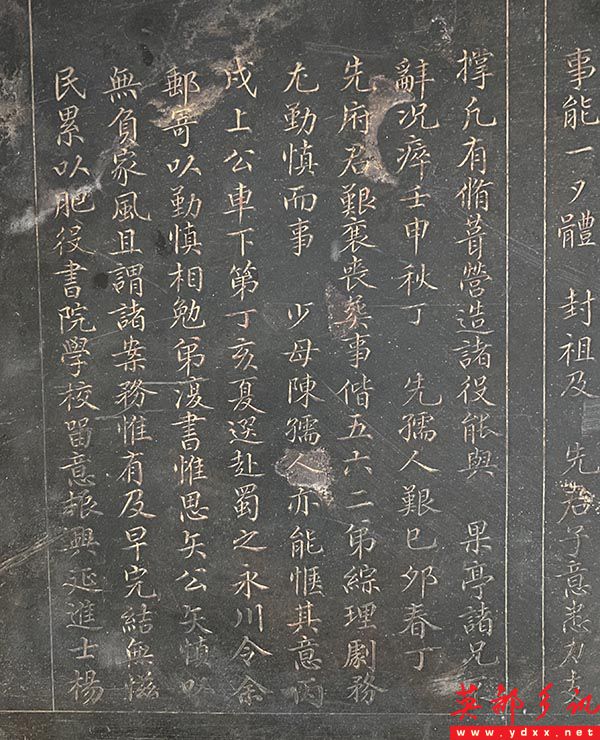 事能一夕體 封祖及 先君子意悉力支
撐凡有脩葺營造諸役能與 果亭諸兄
辭況瘁壬申秋丁 先孺人艱巳夘春丁
先府君艱襄喪葬事偕五六二弟綜理劇務
尤勤慎而事 少母陳孺人亦能愜其意丙
戌上公車下第丁亥夏遥赴蜀之永川令余
郵寄以勤慎相勉弟復書惟思矢公矢慎
無負家風且謂諸案務惟有及早完結無滋
民累以肥役書院學校留意振興延進士楊
英都乡讯
www.ydxx.net